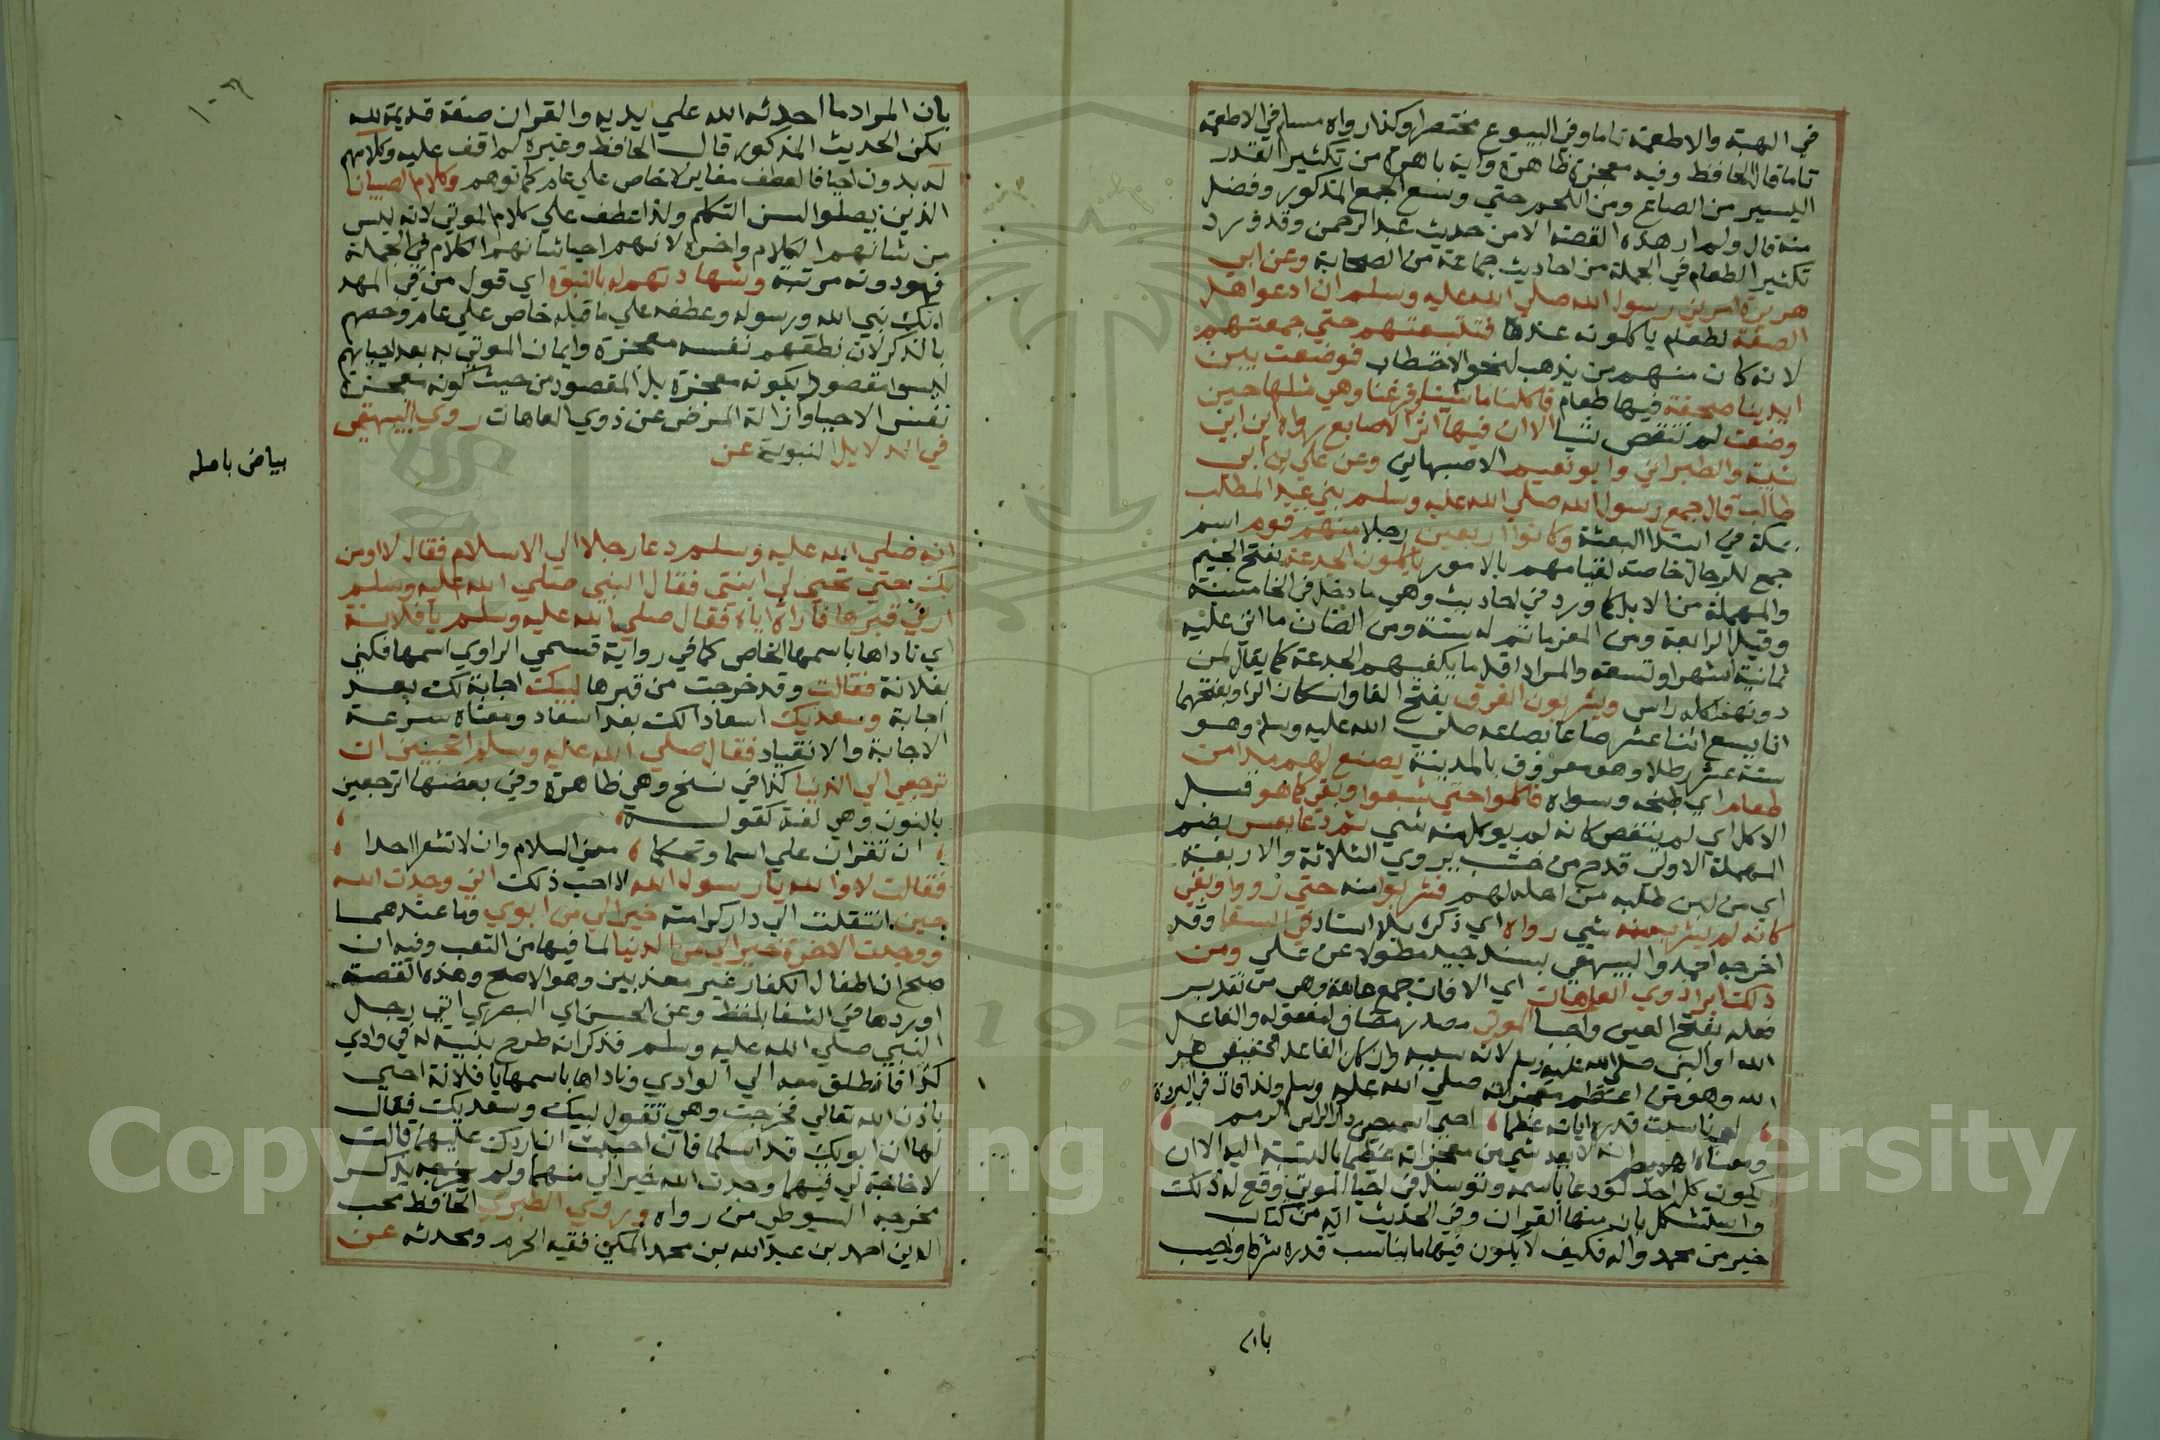 في الهبة والاطعمة تاما وفي البيوع مختصرا وكذا رواه مسلم في الاطعمة
تاما قال الحافظ وفيه معجزة ظاهرة واية باهرة من تكثير القدر
اليسير من الصاع ومن اللحم حتي وسع الجمع المذكور وفضل
منه قال ولم ار هذه القصة الا من حديث عبد الرحمن وقد ورد
تكثير الطعام في الجملة من احاديث جماعة من الصحابة وعن ابي
هريرة امرني رسول الله صلي الله عليه وسلم ان ادعوا هل
الصفة لطعام ياكلونه عندها فتتبعتهم حتي جمعتهم
لانه كان منهم من يذهب لنحو الاحتطاب فوضعت بين
ايدينا صحفة فيها طعام فاكلنا ما شينا وفرغنا وهي مثلها حين
وضعت لم تنقص شيا الا ان فيها اثر الاصابع رواه ابن ابي
شيبة والطبراني وابو نعيم الاصبهاني وعن علي بن ابي
طالب قال جمع رسول الله صلي الله عليه وسلم بني عبد المطلب
بمكة في ابتدا البعثة وكانوا اربعين رجلا منهم قوم اسم
جمع للرجال خاصة لقيامهم بالامور ياكلون الجدعة بفتح الجيم
والمهملة من الابل كما ورد في احاديث وهي ما دخل في الخامسة سنة
وقيل الرابعة ومن المعز ما تم له سنة ومن الضان ما اتي عليه
ثمانية اشهر او تسعة والمراد اقل ما يكفيهم الجدعة كما يقال لمن
دونهم اكله راس ويشربون الفرق بفتح الفا واسكان الرا وبفتحها
انا يسع اثنا عشر صاعا بصاعه صلي الله عليه وسلم وهو
ستة عشر رطلا وهو معروف بالمدينة يصنع لهم مدا من
طعام اي طبخه وسواه فاكلوا حتي شبعوا وبقي كما هو قبل
الاكل اي لم ينقص كانه لم يوكل منه شي ثم دعا بعس بضم
المهملة الاولي قدح من خشب يروي الثلاثة والاربعة
اي من لبن طلبه من اهله لهم فشربوا منه حتي رووا وبقي
كانه لم يشرب منه شي رواه اي ذكره بلا اسناد في الشفا وقد
اخرجه احمد والبيهقي بسند جيد مطولا عن علي ومن
ذلك ابرا ذوي العاهات اي الافات جمع عاهة وهي من تقدير
فعله بفتح العين واحيا الموتي مصدر مضاف لمفعوله والفاعل
الله او النبي صلي الله عليه وسلم لانه سببه وان كان الفاعل الحقيقي هو
الله وهو من اعظم معجزاته صلي الله عليه وسلم ولذا قال في البردة
لو ناسبت قدره اياته عظما احيي اسمه حين يدعي دارس الرمم
ومعناه انه لا يعد شي من معجزاته عظيما بالنسبة اليه الا ان
يكون كل احد لو دعا باسمه وتوسل في احيا الموتي وقع له ذلك
واستشكل بان منها القران وفي الحديث اية من كتاب
خير من محمد واله فكيف لا يكون فيها ما يناسب قدره شرفا واجيب
بان
بان المراد ما احدثه الله علي يديه والقران صفة قديمة لله
لكن الحديث المذكور قال الحافظ وغيره لم اقف عليه وكلامهم
له بدون احيا فالعطف مغاير لا خاص علي عام كما توهم وكلام الصبيان
الذين لم يصلوا لسن التكلم ولذا عطف علي كلام الموتي لانه ليس
من شانهم الكلام واخره لانهم احيا شانهم الكلام في الجملة
فهو دونه مرتبة وشهادتهم له بالنبوة اي قول من في المهد
انك نبي الله ورسوله وعطفه علي ما قبله خاص علي عام وخصهم
بالذكر لان نطقهم نفسه معجزة وايمان الموتي به بعد احيايهم
ليس مقصودا بكونه معجزة بل المقصود من حيث كونه معجزة
نفس الاحيا وازالة المرض عن ذوي العاهات روي البيهقي
في الدلايل النبوية عن
بياض باصله
انه صلي الله عليه وسلم دعا رجلا الي الاسلام فقال لا اومن
بك حتي تحيي لي ابنتي فقال النبي صلي الله عليه وسلم
ارني قبرها فاراه اياه فقال صلي الله عليه وسلم يا فلانة
اي ناداها باسمها الخاص كما في رواية فسمي الراوي اسمها فكني
بفلانة فقالت وقد خرجت من قبرها لبيك اجابة لك بعد
اجابة وسعديك اسعادا لك بعد اسعاد ومعناه سرعة
الاجابة والانقياد فقال صلي الله عليه وسلم اتحبين ان
ترجعي الي الدنيا كذا في نسخ وهي ظاهرة وفي بعضها اترجعين
بالنون وهي لغة كقوله
ان تقران علي اسما ويحكما مني السلام وان لا تشعرا احدا
فقالت لا والله يا رسول الله لا احب ذلك اني وجدت الله
حين انتقلت الي دار كرامته خيرا لي من ابوي وما عندهما
ووجدت الاخرة خيرا لي من الدنيا لما فيها من التعب وفيه ان
صلح ان اطفال الكفار غير معذبين وهو الاصح وهذه القصة
اوردها في الشفا بلفظ وعن الحسن اي البصري اتي رجل
النبي صلي الله عليه وسلم فذكر انه طرح بنية له في وادي
كذا فانطلق معه الي الوادي وناداها باسمها يا فلانة احيي
باذن الله تعالي فخرجت وهي تقول لبيك وسعديك فقال
لها ان ابويك قد اسلما فان احببت ان اردك عليهما قالت
لا حاجة لي فيهما وجدت الله خيرا لي منهما ولم يخرجه يذكر
مخرجه السيوطي من رواه وروي الطبري الحافظ محب
الدين احمد بن عبد الله بن محمد المكي فقيه الحرم ومحدثه عن
Copyright © King Saud University